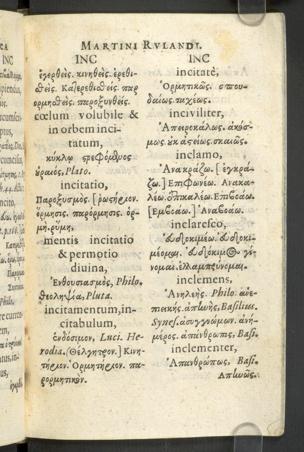 MARTINI RVLANDI.
INC
ἐγερθείς. κινηθείς. ἐρεθι-
σθείς. παρ
ορμηθείς. παροξυνθείς.
cœlum volubile &
in orbem inci-
tatum,
κύκλῳ στρεφόμενος
οὐρανός. Plato.
incitatio,
Παροξυσμός. [ῥωσήμον.
ὅρμησις. παρόρμησις. ὁρ-
μή. ῥύμη.
mentis incitatio
& permotio
diuina,
Ἐνθουσιασμός, Philo.
Pluta.
incitamentum, in-
citabulum,
ἐνδόσιμον. Luci. He-
rodia. (θέλγητρον.] Κινη-
τήριον. Ὁρμητήριον. πα-
ρορμητικόν.
INC
incitatè,
Ὁρμητικῶς. σπου-
δαίως. ταχέως.
inciviliter,
Ἀπειροκάλως. ἀκόσ-
μως. οὐκ ἀστείως. σκαιῶς.
inclamo,
Ἀνακράζω. [ἐγκρά-
ζω.] Ἐπιφωνέω. Ἀνακα-
λέω. ἐπικαλέω. Ἐπιβοάω.
[Ἐμβοάω.] Ἀναβοάω.
inclaresco,
εὐδοκιμέω. εὐδοκι-
μέομαι. εὐδόκιμος γί-
νομαι. ἐλλαμπρύνομαι.
inclemens,
Ἀνηλεής. Philo. ἀνε-
πιεικής. ἀπηνής, Basilius.
Synes. ἀσυγγνώμων. ἀνή-
μερος. ἀπάνθρωπος, Basi.
inclementer,
Ἀπανθρώπως. Basi.
Ἀπηνῶς.